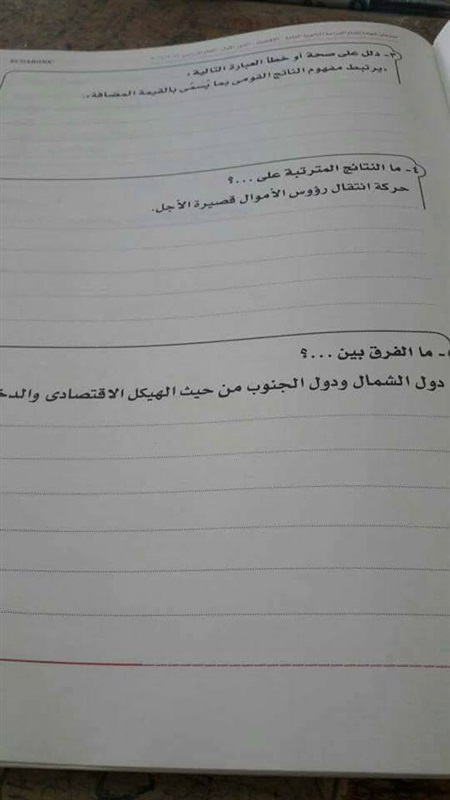 ٣- دلل على صحة أو خطأ العبارة التالية :
"يرتبط مفهوم الناتج القومى بما يُسمَّى بالقيمة المضافة".
٤- ما النتائج المترتبة على ...؟
حركة انتقال رؤوس الأموال قصيرة الأجل.
- ما الفرق بين ...؟
دول الشمال ودول الجنوب من حيث الهيكل الاقتصادى